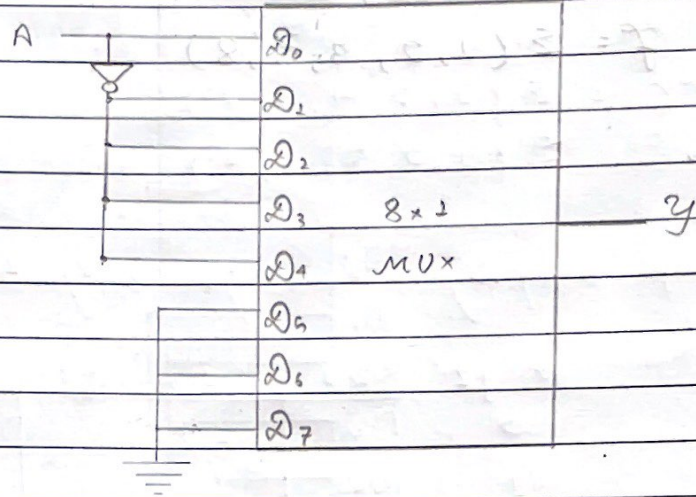 A
D0
D1
D2
D3
8x1
Y
D4
MUX
D5
D6
D7